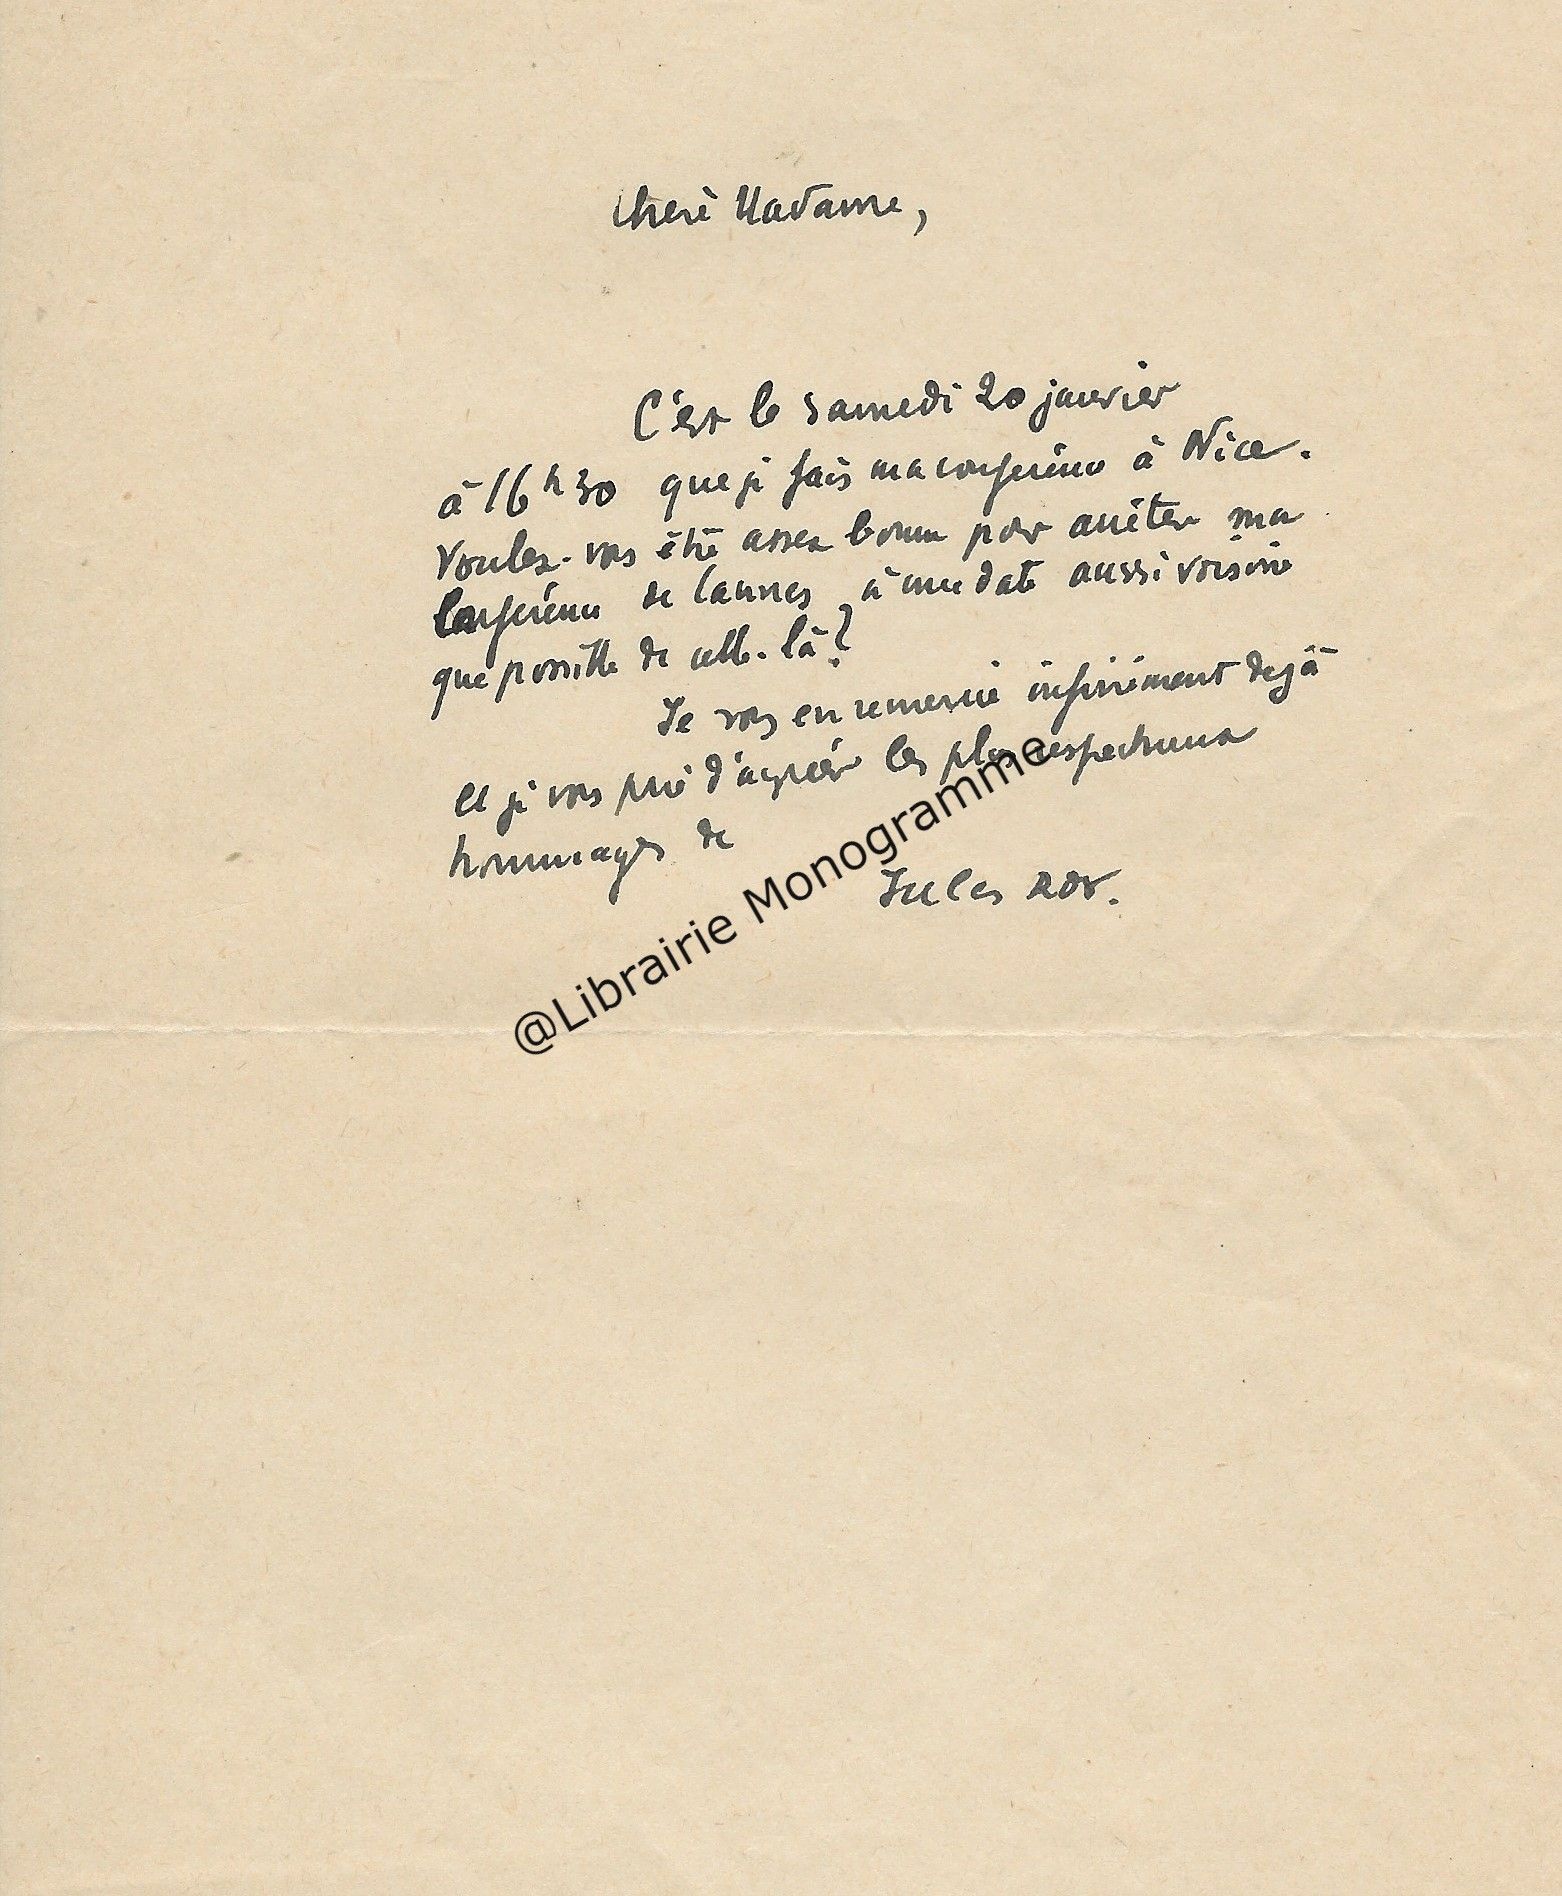 Chère Madame,
C'est le samedi 20 janvier
à 16h30 que je fais ma conférence à Nice.
Voulez-vous être assez bonne pour arrêter ma
conférence de Cannes à une date aussi voisine
que possible de celle-là?
Je vous en remercie infiniment dejà
et je vous prie d'agréer les plus respectueux
hommages de
Jules Roy.
@Librairie Monogramme